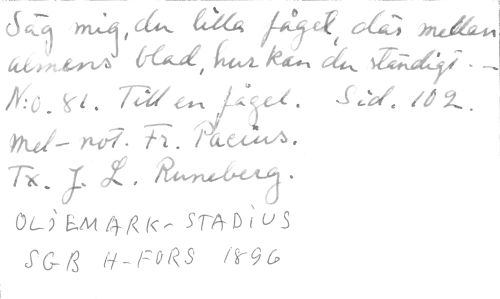 Säg mig, du lilla fågel, där mellan
almens blad, hur kan du ständigt -
N:o. 81. Till en fågel. Sid. 102.
mel-not. Fr. Pacius.
Tx. J. L. Runeberg.
OLJEMARK-STADIUS
SGB H-FORS 1896